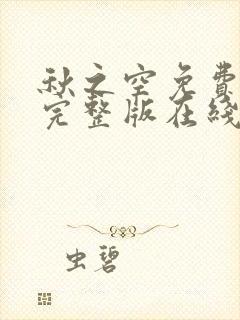 秋之空免费
完整版在綫
虫碧